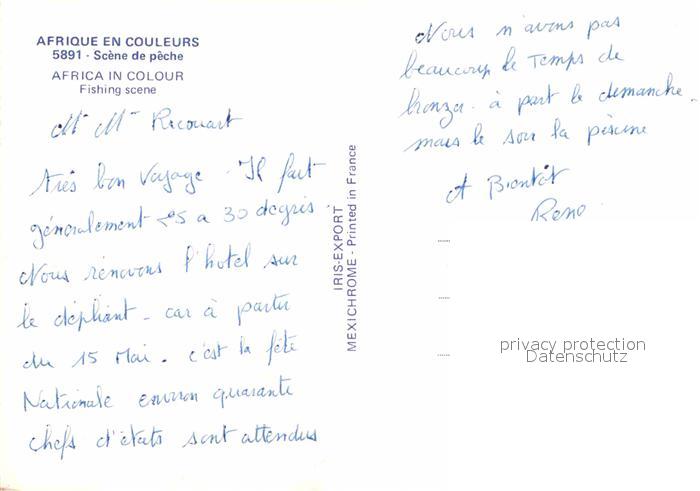 AFRIQUE EN COULEURS
5891 - Scène de pêche
AFRICA IN COLOUR
Fishing scene
Mr Mme Recouart
très bon voyage. Il fait
généralement 25 a 30 degrés.
Nous rénovons l'hotel sur
le dépliant - car à partir
du 15 Mai. c'est la fête
Nationale environ quarante
chefs d'états sont attendus
IRIS-EXPORT
MEXICHROME - Printed in France
Nous n'avons pas
beaucoup le temps de
bronzer. à part le dimanche.
mais le soir la piscine
A Bientôt
Reno
privacy protection
Datenschutz